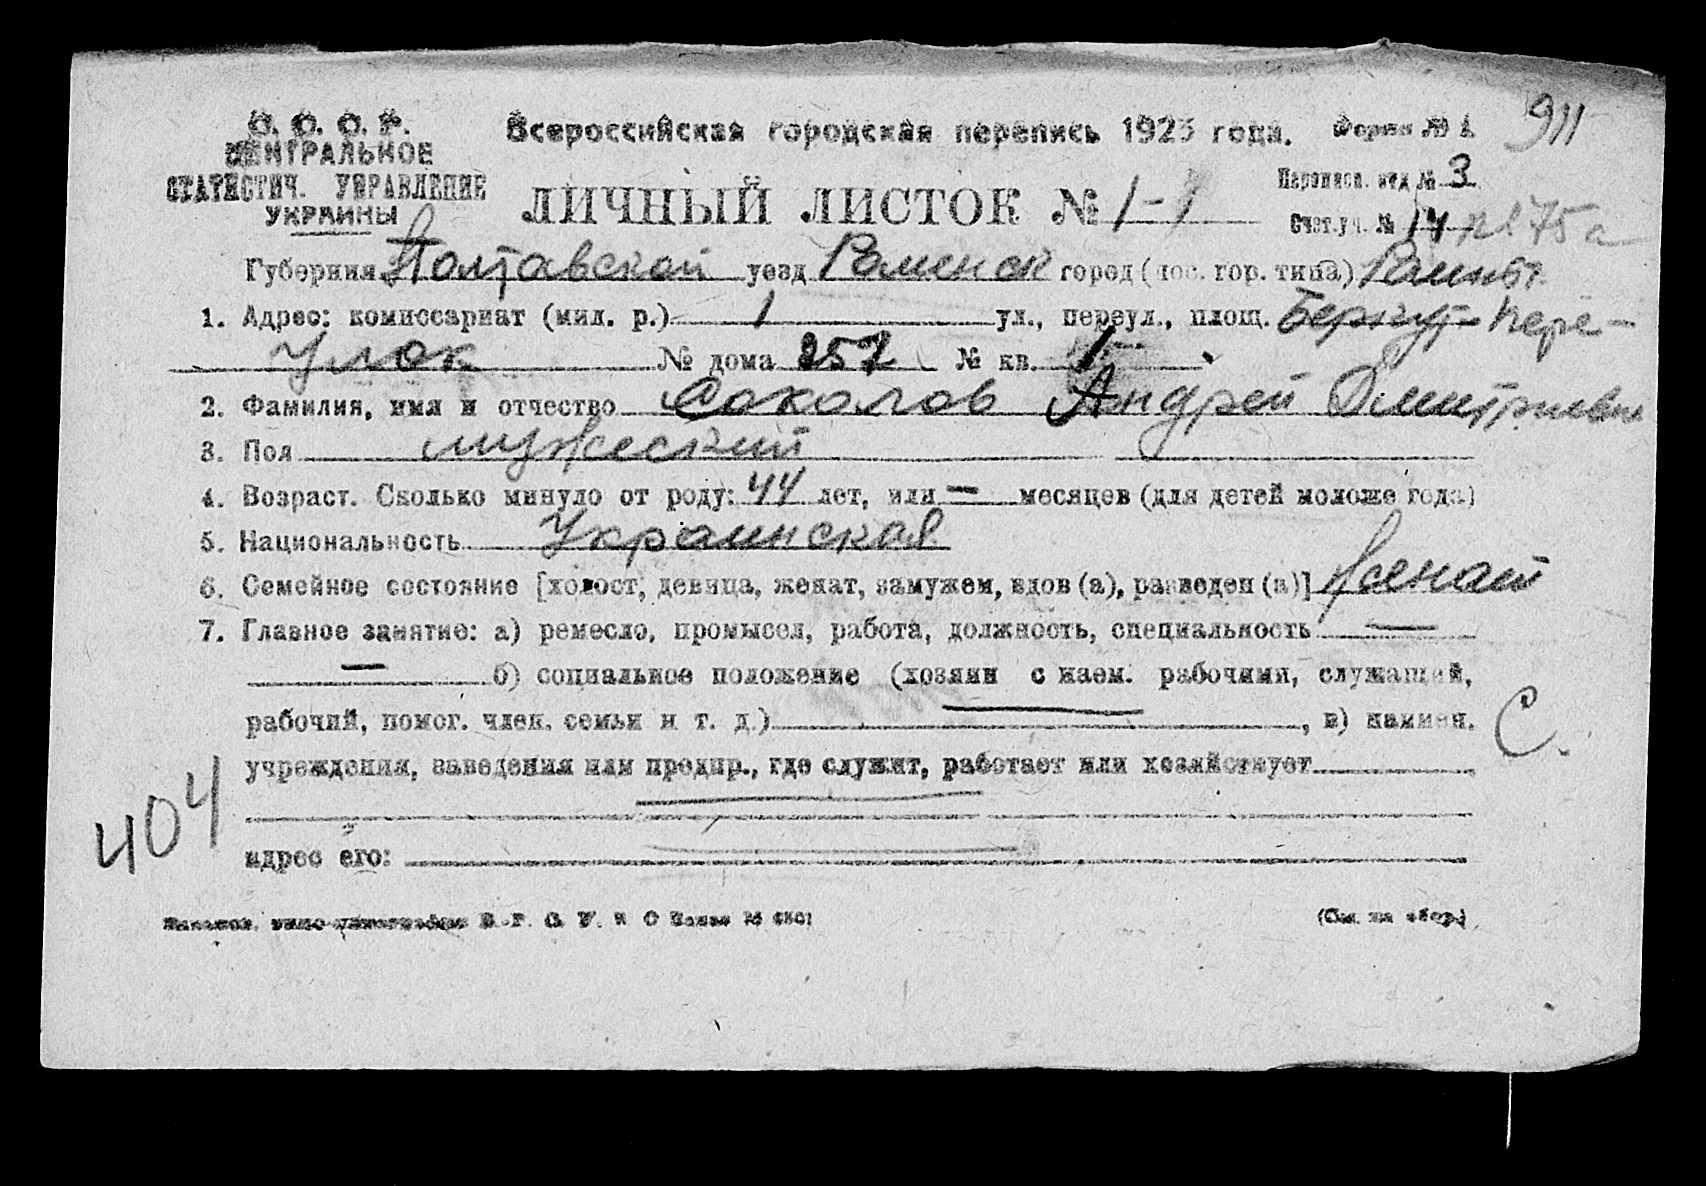 С. С. С. Р.
ЦЕНТРАЛЬНОЕ
СТАТИСТИЧ. УПРАВЛЕНИЕ
УКРАИНЫ
Всероссийская городская перепись 1923 года.
Форма № 1.
911
ЛИЧНЫЙ ЛИСТОК № 1-1
Переписн. отд № 3
Счет. уч. № 14 75а
Губерния Полтавской уезд Роменск город (пос. гор. типа) Ромны
1. Адрес: комиссариат (мил. р.) 1 ул., переул., площ. пере-
улок № дома 257 № кв. 1
2. Фамилия, имя и отчество Соколов Андрей Дмитриевич
3. Пол мужеский
4. Возраст. Сколько минуло от роду: 44 лет, или — месяцев (для детей моложе года)
5. Национальность Украинская
6. Семейное состояние [холост, девица, женат, замужем, вдов (а), разведен (а)] Женат
7. Главное занятие: а) ремесло, промысел, работа, должность, специальность —
— б) социальное положение (хозяин с наем. рабочими, служащий,
рабочий, помог. член. семьи и т. д.) , в) наимен.
С.
учреждения, заведения или предпр., где служит, работает или хозяйствует
404
адрес его:
(См. на обор.)